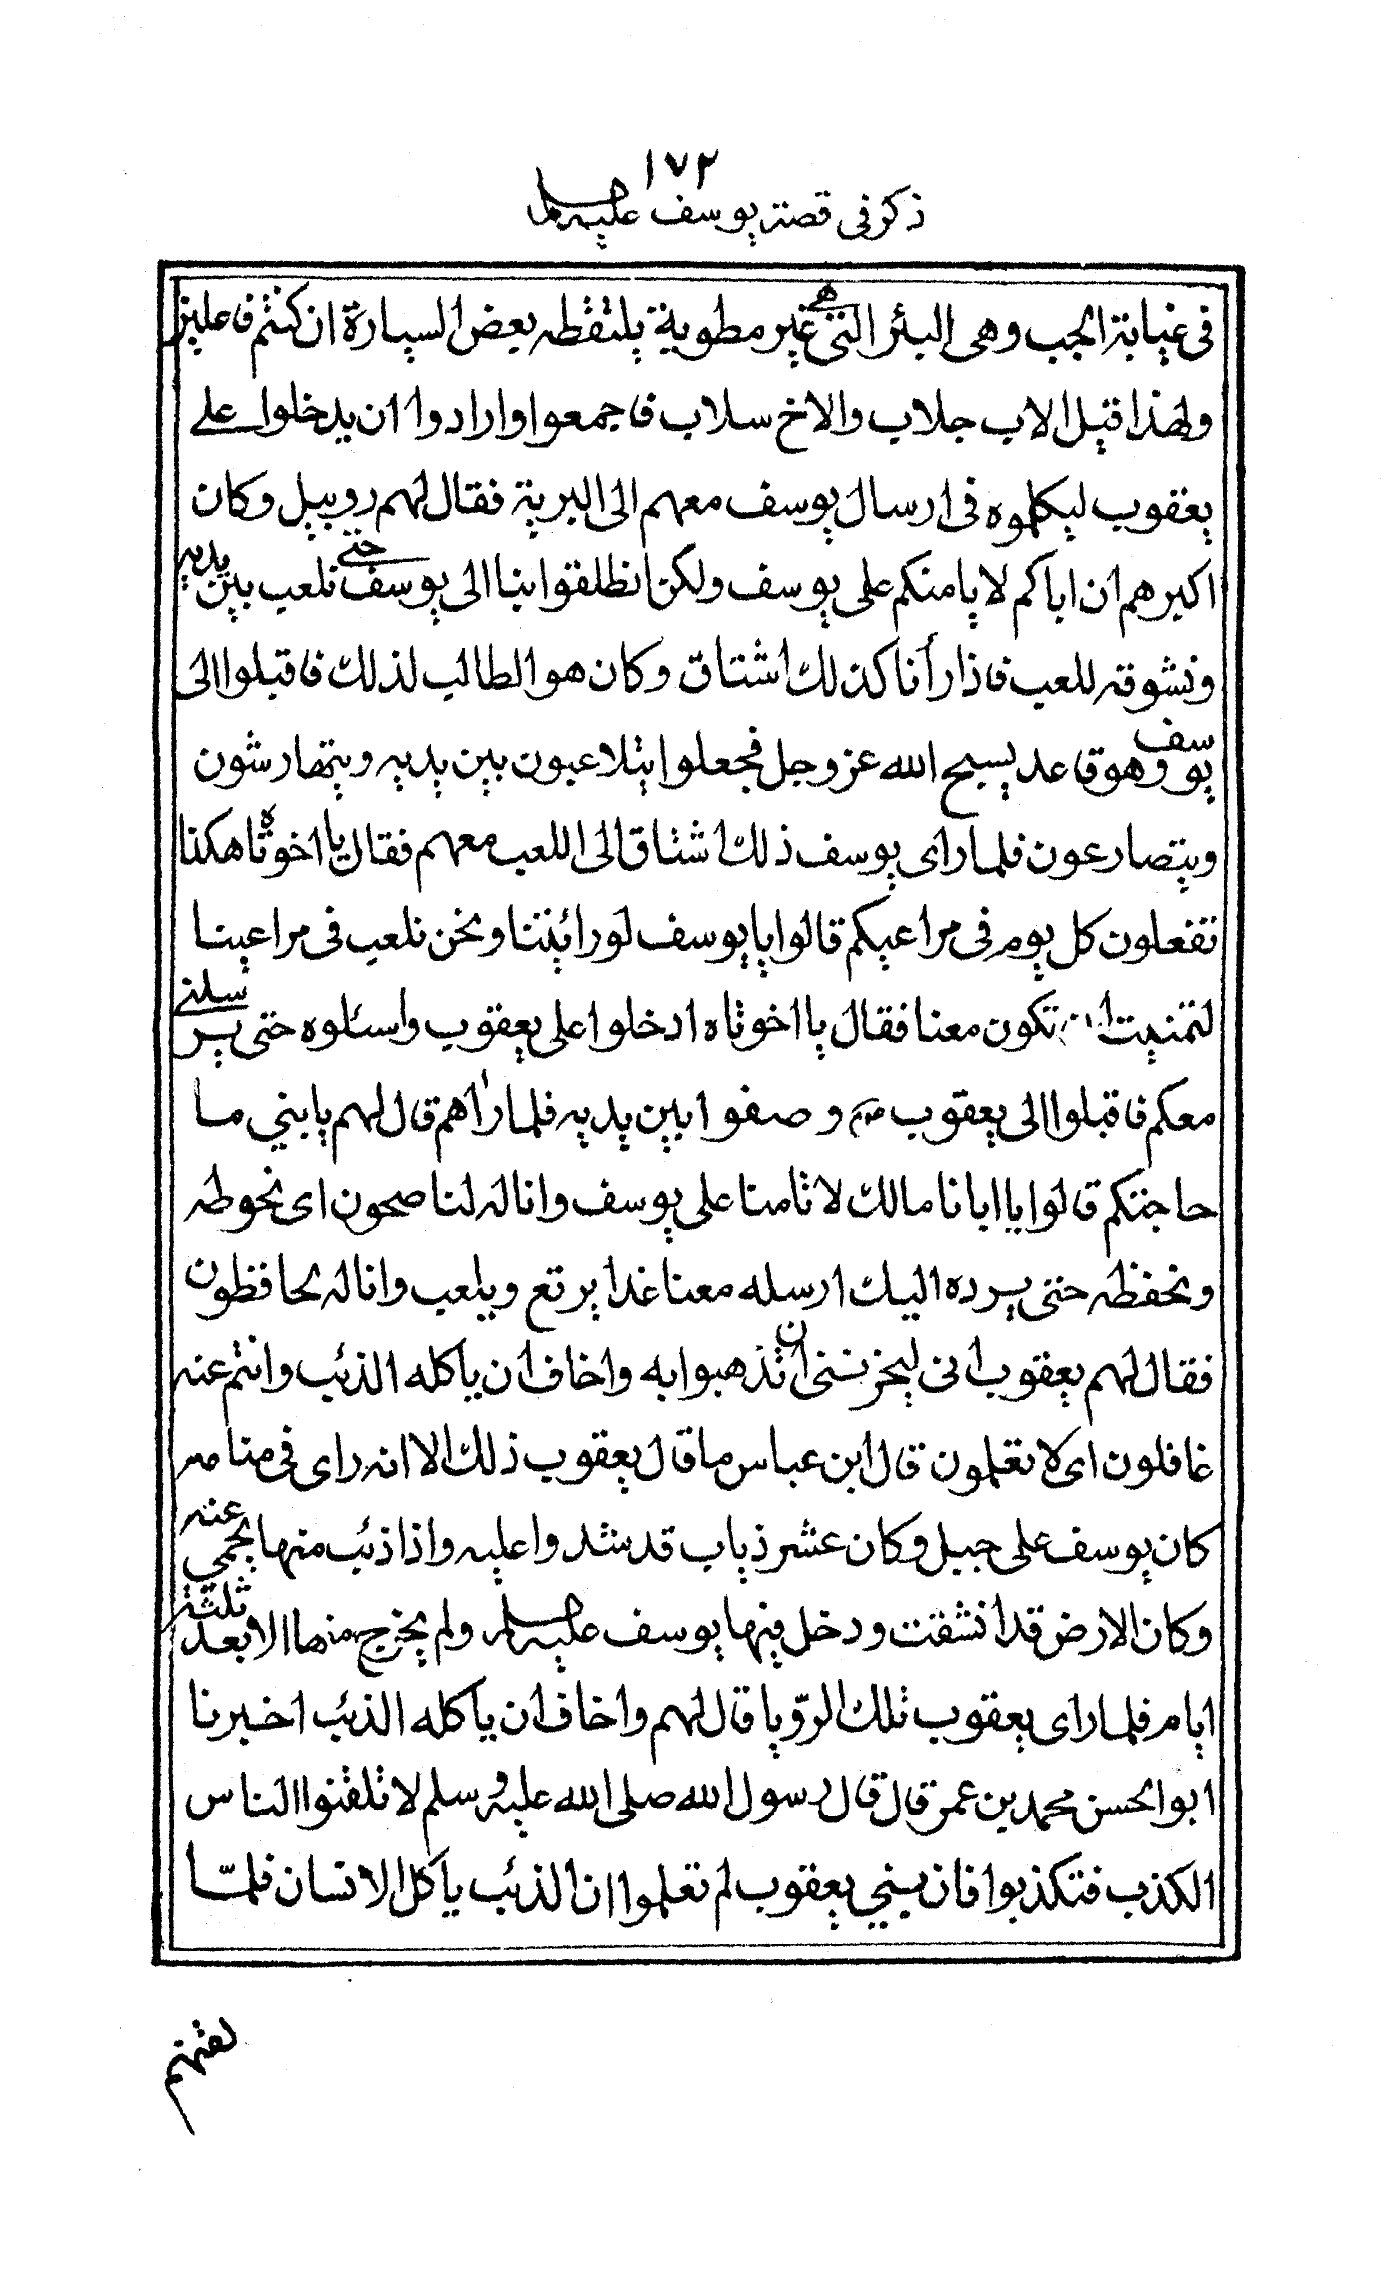 ١٧٢
ذكر في قصة يوسف عليه السلام
في غيابة الجب وهي البئر التي هي غير مطوية يلتقطه بعض السيارة ان كنتم فاعلين
ولهذا قيل الاب جلاب والاخ سلاب فاجمعوا وارادوا ان يدخلوا على
يعقوب ليكلموه في ارسال يوسف معهم الى البرية فقال لهم روبيل وكان
اكبرهم ان اباكم لا يامنكم على يوسف ولكن انطلقوا بنا الى يوسف حتى نلعب بين يديه
ونشوقه للعب فاذا رأنا كذلك اشتاق وكان هو الطالب لذلك فاقبلوا الى
يوسف وهو قاعد يسبح الله عز وجل فجعلوا يتلاعبون بين يديه ويتهارشون
ويتصارعون فلما راى يوسف ذلك اشتاق الى اللعب معهم فقال يا اخوتاه هكذا
تفعلون كل يوم في مراعيكم قالوا يا يوسف لو رائيتنا ونحن نلعب في مراعينا
لتمنيت ان تكون معنا فقال يا اخوتاه ادخلوا على يعقوب واسئلوه حتى يرسلني
معكم فاقبلوا الى يعقوب وصفوا بين يديه فلما رأهم قال لهم يا بني ما
حاجتكم قالوا يا ابانا مالك لا تامنا على يوسف وانا له لناصحون اى نحوطه
ونحفظه حتى يرده اليك ارسله معنا غدا يرتع ويلعب وانا له لحافظون
فقال لهم يعقوب انى ليحزننى ان تذهبوا به واخاف ان ياكله الذئب وانتم عنه
غافلون اى لا تعلمون قال ابن عباس ما قال يعقوب ذلك الا انه راى في منامه
كان يوسف على جبل وكان عشر ذياب قد شدوا عليه واذا ذئب منها يحمي عنه
وكان الارض قد انشقت ودخل فيها يوسف عليه السلام ولم يخرج منها الا بعد ثلثة
ايام فلما راى يعقوب تلك الروّيا قال لهم واخاف ان ياكله الذئب اخبرنا
ابو الحسن محمد بن عمر قال قال رسول الله صلى الله عليه وسلم لا تلقنوا الناس
الكذب فتكذبوا فان بني يعقوب لم تعلموا ان الذئب ياكل الانسان فلمّا
لقنهم